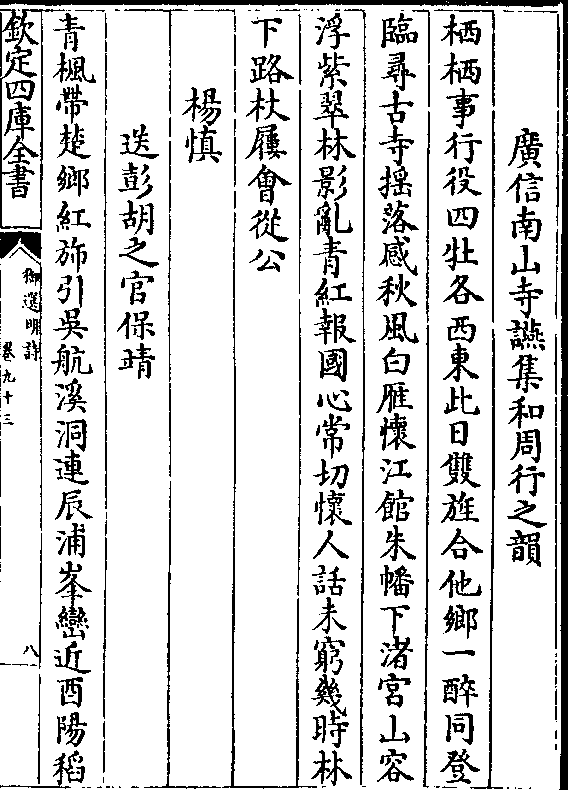 廣信南山寺讌集和周行之韻
栖栖事行役四牡各西東此日雙旌合他鄉一醉同登
臨尋古寺揺落感秋風白雁懷江館朱幡下渚宫山容
浮紫翠林影亂青紅報國心常切懷人話未窮幾時林
下路杖屨會從公
楊慎
送彭胡之官保靖
青楓帶楚鄉紅斾引吳航溪洞連辰浦峯巒近酉陽稻
欽定四庫全書
御選明詩
卷九十三
八